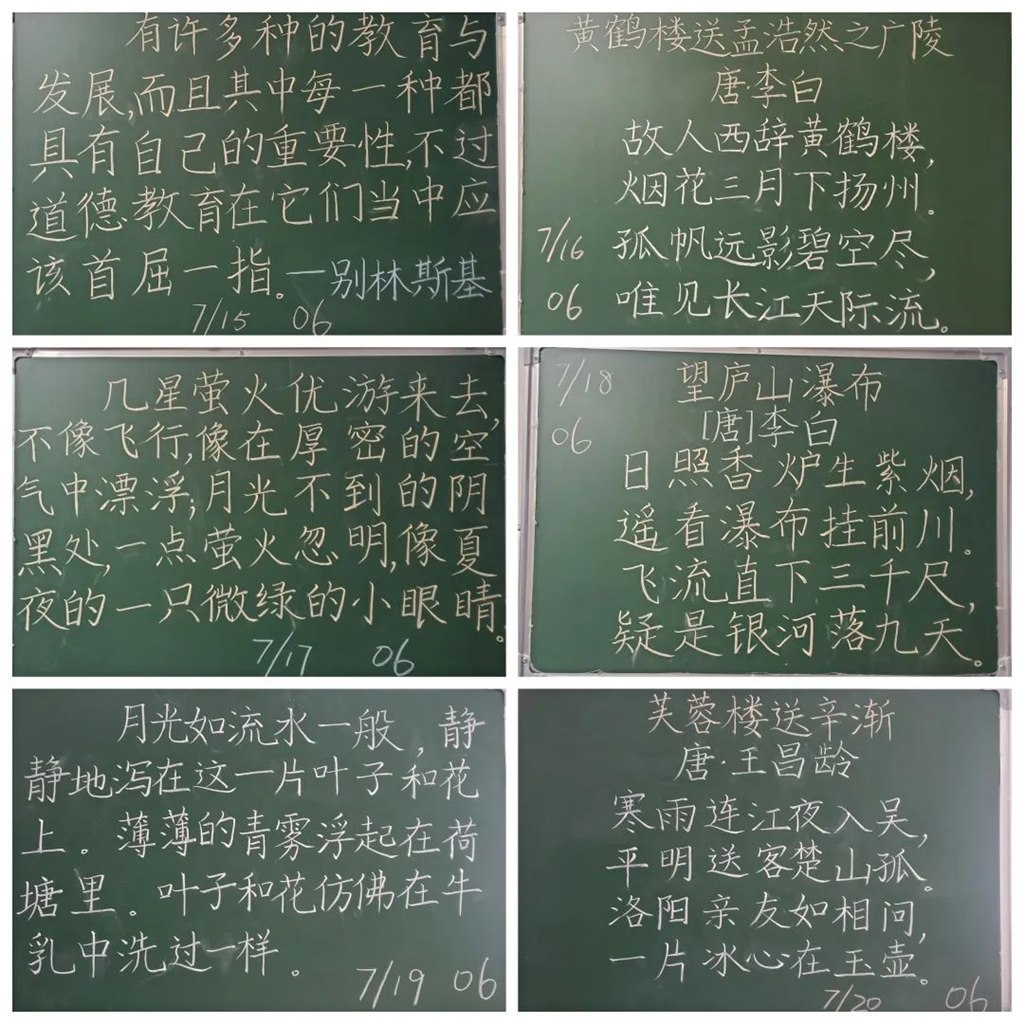 有许多种的教育与
发展,而且其中每一种都
具有自己的重要性,不过
道德教育在它们当中应
该首屈一指。—别林斯基
7/15 06
黄鹤楼送孟浩然之广陵
唐·李白
故人西辞黄鹤楼,
烟花三月下扬州。
7/16 孤帆远影碧空尽,
06 唯见长江天际流。
几星萤火优游来去,
不像飞行,像在厚密的空
气中漂浮;月光不到的阴
黑处,一点萤火忽明,像夏
夜的一只微绿的小眼睛。
7/17 06
7/18 望庐山瀑布
06 [唐]李白
日照香炉生紫烟,
遥看瀑布挂前川。
飞流直下三千尺,
疑是银河落九天。
月光如流水一般,静
静地泻在这一片叶子和花
上。薄薄的青雾浮起在荷
塘里。叶子和花仿佛在牛
乳中洗过一样。
7/19 06
芙蓉楼送辛渐
唐·王昌龄
寒雨连江夜入吴,
平明送客楚山孤。
洛阳亲友如相问,
一片冰心在玉壶。
7/20 06